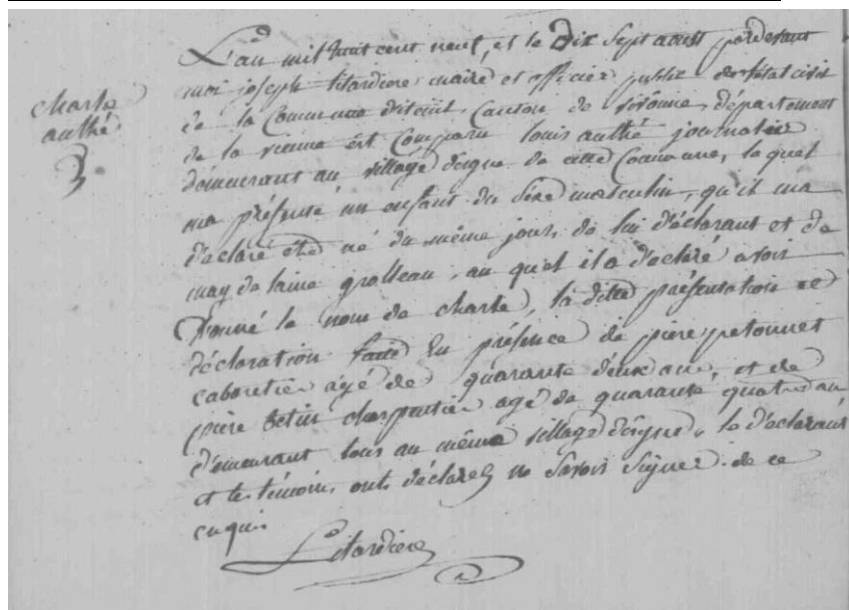 charle
authé
L'an mil huit cent neuf, et le Dix Sept aoust pardevant
moi joseph Litardiere maire et officier public de l'etat civil
de la Commune d'iteuil Canton de vivonne, département
de la vienne est Comparu louis authé journalier
demeurant au village d'aigne de cette Commune, le quel
ma présenté un enfant du sexe masculin, qu'il ma
declaré etre né du même jour, de lui déclarant et de
magdelaine grolleau, au quel il a declaré avoir
Donné le nom de charle, la ditte présentation et
déclaration faite En présence de piere petonnet
cabaretier agé de quarante deux ans, et de
piere charpentier agé de quarante quatre an
demeurant tous au même village d'aigne, le déclarant
et les témoins ont déclarés ne Savoir Signer de ce
enquis
Litardiere